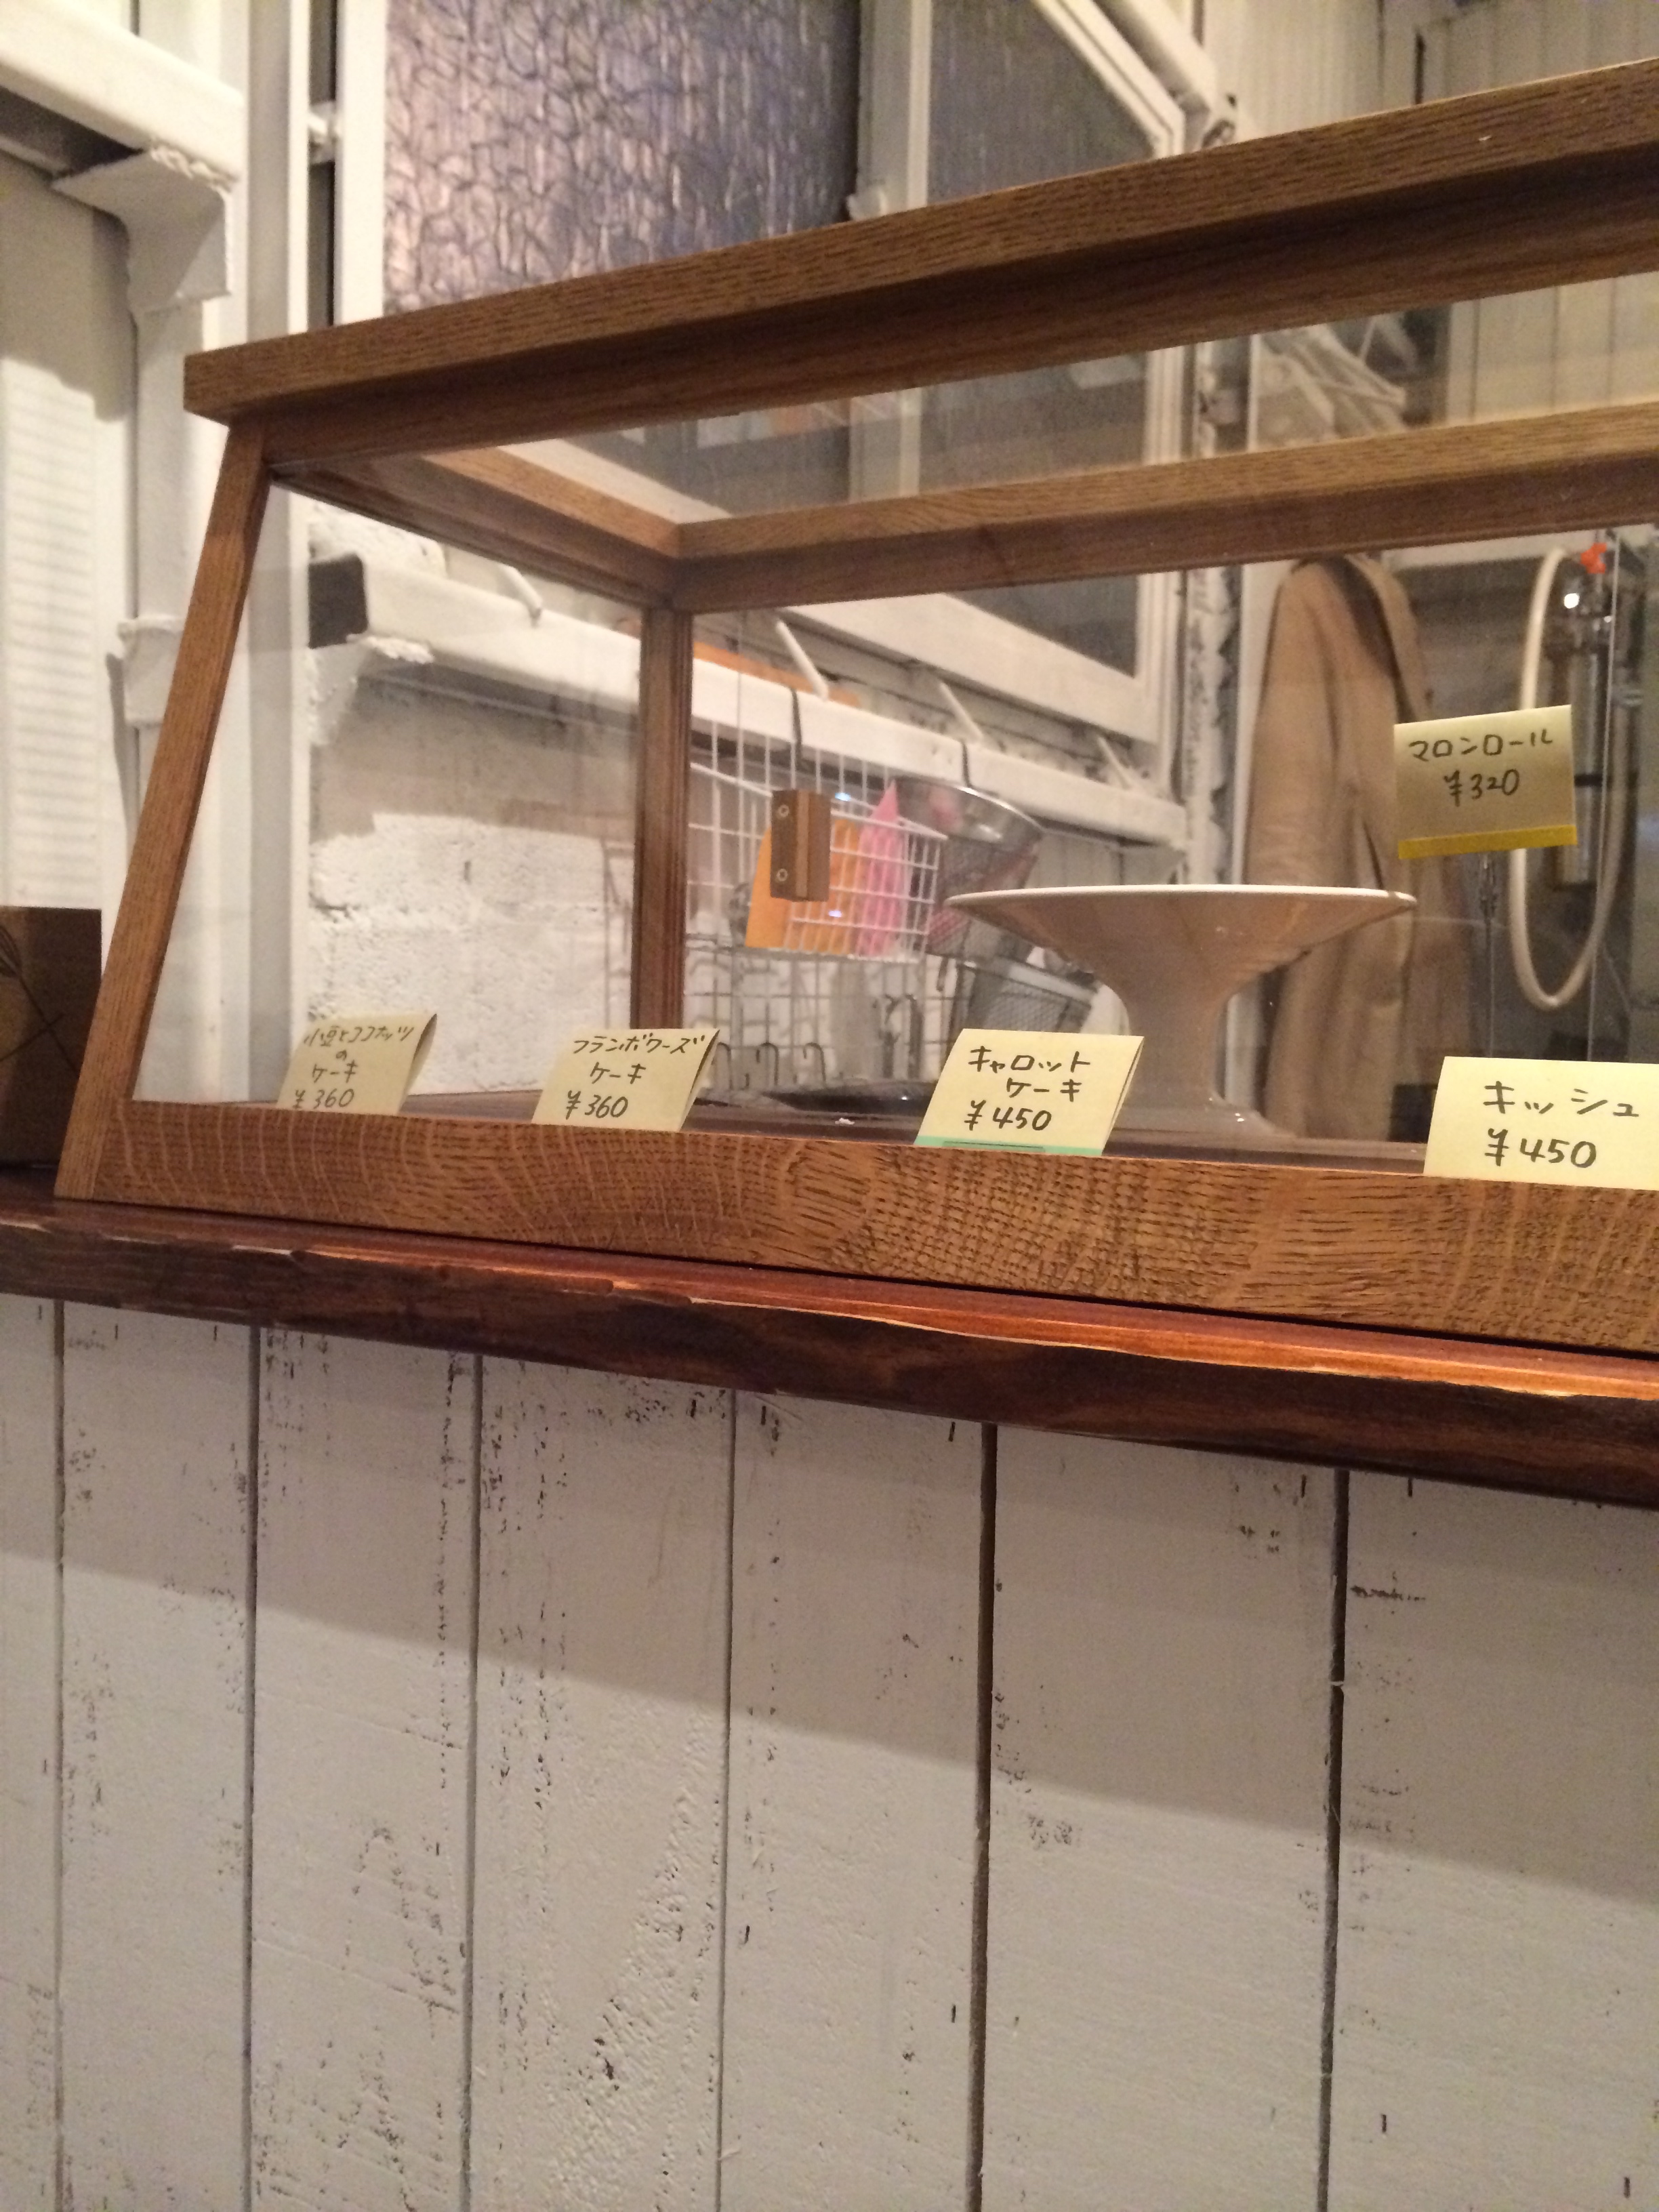 マロンロール
¥320
小豆とココナッツ
の
ケーキ
¥360
フランボワーズ
ケーキ
¥360
キャロット
ケーキ
¥450
キッシュ
¥450